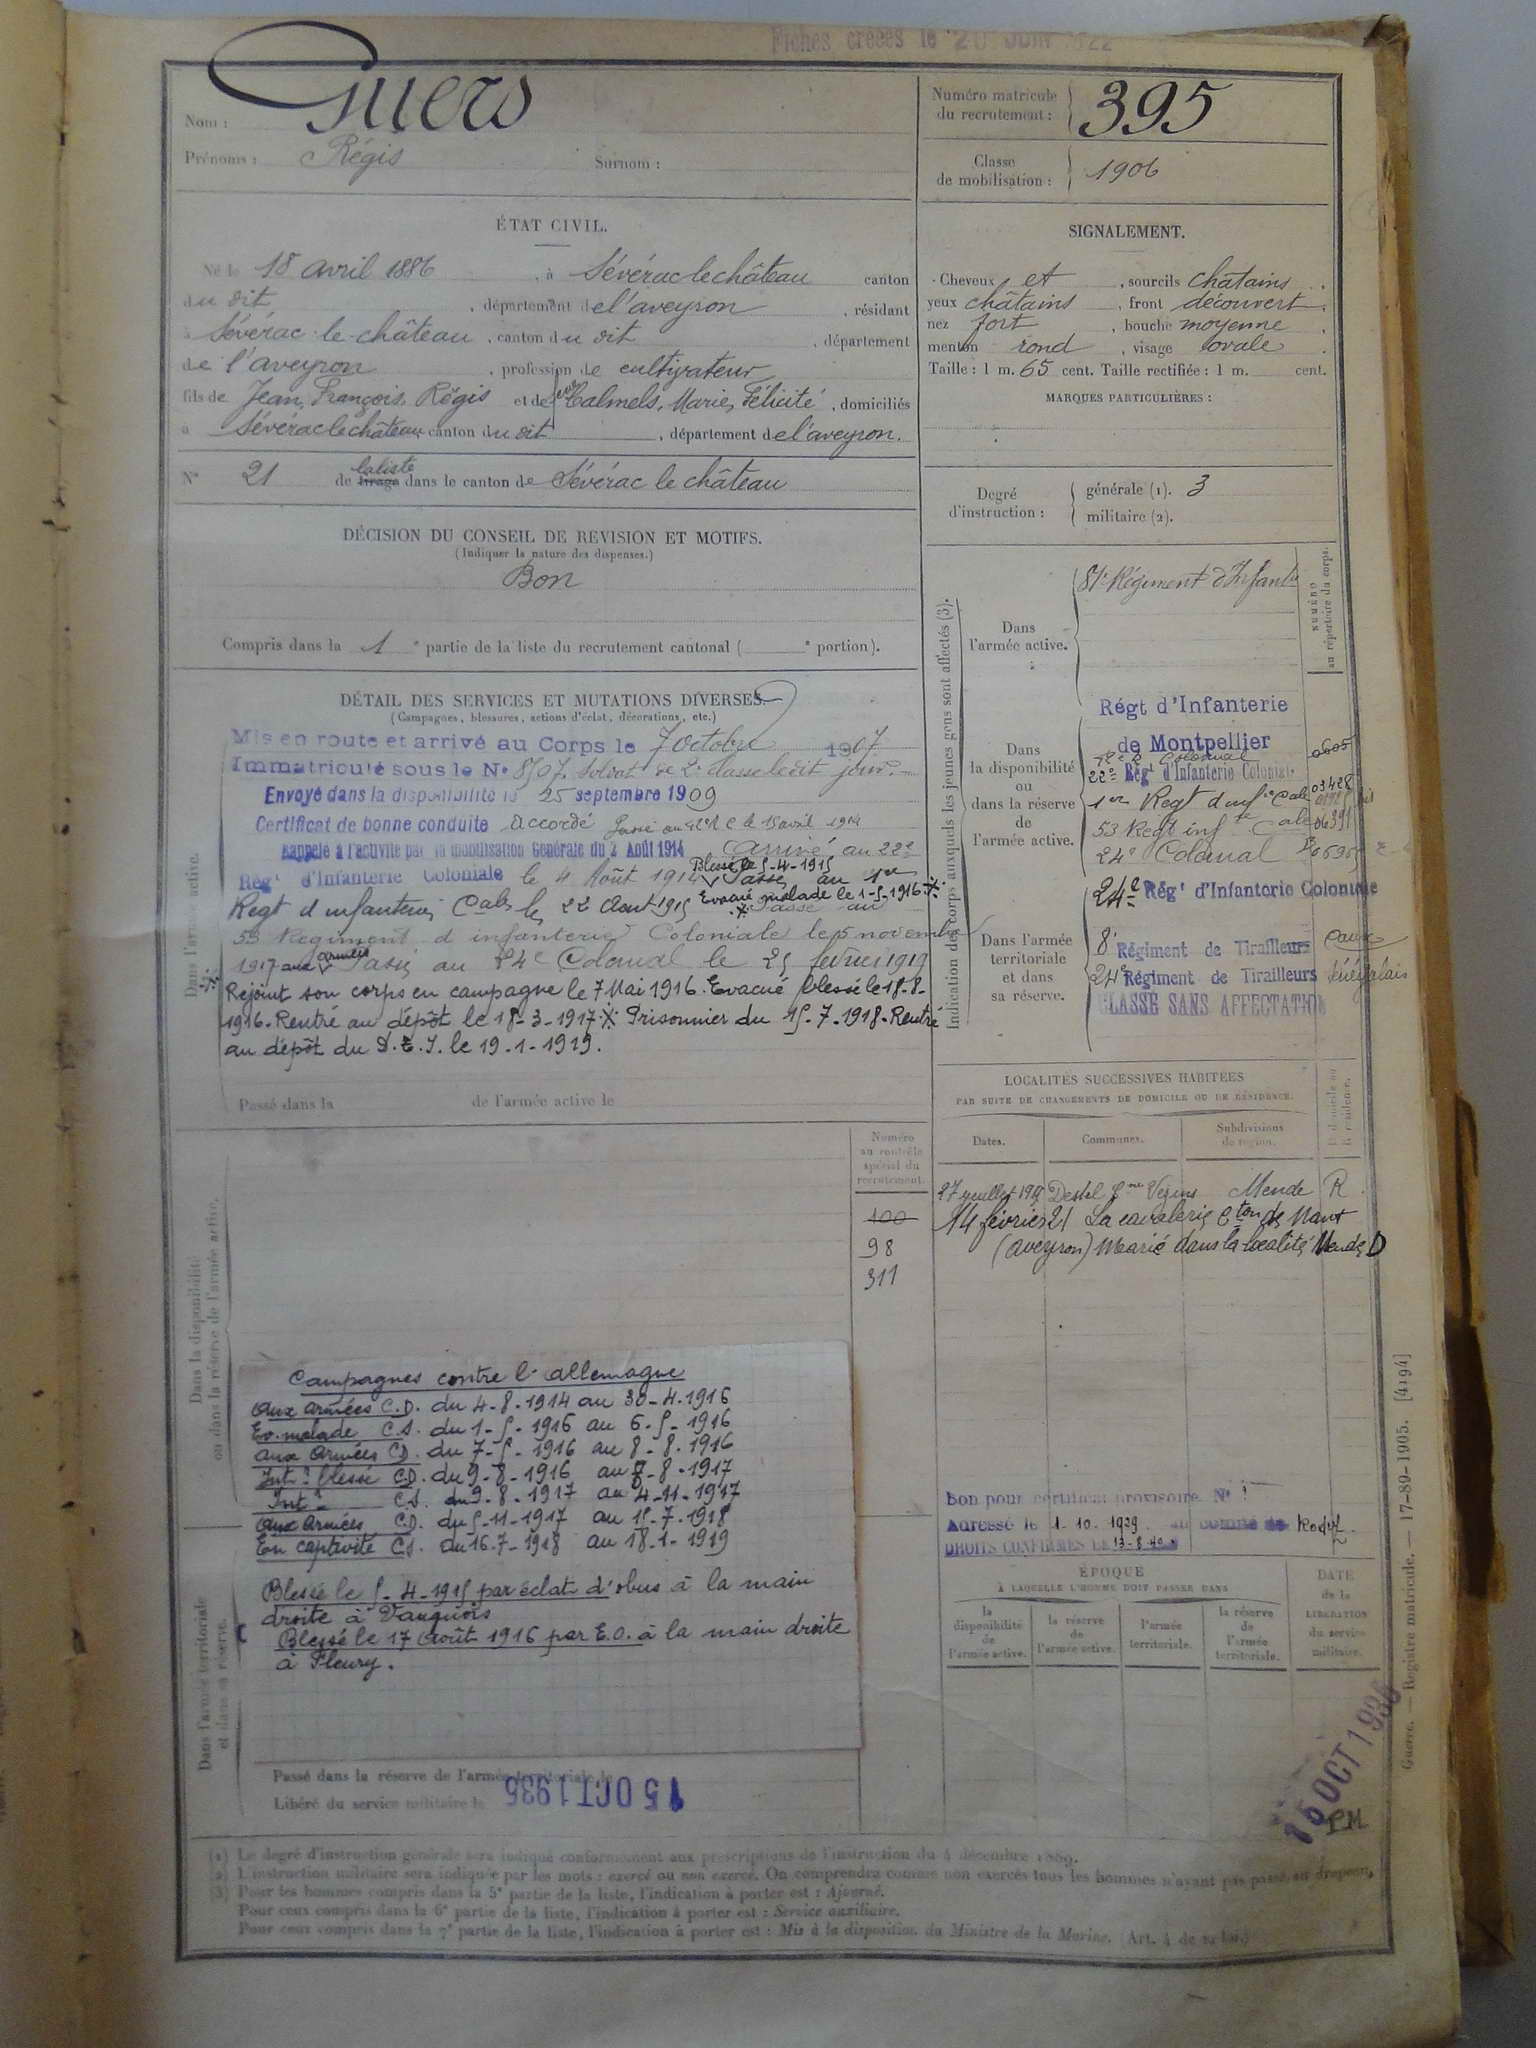 Fiches créées le 20 JUIN 1922
Nom : Guers
Prénoms : Régis Surnom :
Numéro matricule
du recrutement : 395
Classe
de mobilisation : 1906
ÉTAT CIVIL.
Né le 18 avril 1886, à Sévérac le château canton
du dit, département de l'aveyron, résidant
à Sévérac le château, canton du dit, département
de l'aveyron, profession de cultivateur
fils de Jean, François, Régis et de Calmels, Marie, Félicité, domiciliés
à Sévérac le château canton du dit, département de l'aveyron.
N° 21 de la liste tirage dans le canton de Sévérac le château
SIGNALEMENT.
Cheveux et, sourcils châtains
yeux châtains, front découvert
nez fort, bouche moyenne
menton rond, visage ovale
Taille : 1 m. 65 cent. Taille rectifiée : 1 m. cent.
MARQUES PARTICULIÈRES :
Degré
d'instruction :
générale (1). 3
militaire (2).
DÉCISION DU CONSEIL DE REVISION ET MOTIFS.
(Indiquer la nature des dispenses.)
Bon
Compris dans la 1e partie de la liste du recrutement cantonal ( e portion).
DÉTAIL DES SERVICES ET MUTATIONS DIVERSES.
(Campagnes, blessures, actions d'éclat, décorations, etc.)
Dans l'armée active.
Mis en route et arrivé au Corps le 7 octobre 1907
Immatriculé sous le N° 8707. Soldat de 2e classe le dit jour.
Envoyé dans la disponibilité le 25 septembre 1909
Certificat de bonne conduite Accordé Passé au 22e R C le 15 avril 1914
Rappelé à l'activité par la mobilisation Générale du 2 Août 1914 Arrivé au 22e
Régt d'Infanterie Coloniale le 4 Août 1914 Blessé le 5-4-1915 Passé au 1er
Regt d'infanterie Cale le 22 Aout 1915 Evacué malade le 1-5-1916 Passé au
53 Régiment d'infanterie Coloniale le 5 novembre
1917 aux armées Passé au 24e Colonial le 25 février 1919
Rejoint son corps en campagne le 7 Mai 1916. Evacué blessé le 18-8-
1916. Rentré au dépôt le 18-3-1917 Prisonnier du 15-7-1918. Rentré
au dépôt du D.E.I. le 19-1-1919.
Passé dans la de l'armée active le
Indication des corps auxquels les jeunes gens sont affectés (3).
NUMÉRO
au répertoire du corps.
Dans
l'armée active.
81e Régiment d'Infanterie
Dans
la disponibilité
ou
dans la réserve
de
l'armée active.
Régt d'Infanterie
de Montpellier 0605
22e Régt d'Infanterie Coloniale 03428
1er Regt d'infie Cale
53 Regt infte Cale 06391
24e Colonial
Dans l'armée
territoriale
et dans
sa réserve.
24e Régt d'Infanterie Coloniale
8e Régiment de Tirailleurs
24e Régiment de Tirailleurs Sénégalais
CLASSE SANS AFFECTATION
LOCALITÉS SUCCESSIVES HABITÉES
PAR SUITE DE CHANGEMENTS DE DOMICILE OU DE RÉSIDENCE.
Dates. Communes. Subdivisions
de région. D. domicile ou
R. résidence.
Mende R
14 février 21 La cavalerie Cton de Nant
(aveyron) Marié dans la localité Mende D
Numéro
au contrôle
spécial du
recrutement.
100
98
311
Dans la disponibilité
ou dans la réserve de l'armée active.
Campagnes contre l'allemagne
aux armées C.D. du 4-8-1914 au 30-4-1916
Ev. malade C.S. du 1-5-1916 au 6-5-1916
aux Armées C.D. du 7-5-1916 au 8-8-1916
Intr blessé C.D. du 9-8-1916 au 8-8-1917
Intr C.S. du 9-8-1917 au 4-11-1917
aux Armées C.D. du 5-11-1917 au 15-7-1918
En captivité C.S. du 16-7-1918 au 18-1-1919
Blessé le 5-4-1915 par éclat d'obus à la main
droite à Vauquois
Blessé le 17 août 1916 par E.O. à la main droite
à Fleury.
Bon pour certificat provisoire N°
Adressé le 1-10-1929 au comité de Rodez
DROITS CONFIRMÉS LE 13-8-40
ÉPOQUE
À LAQUELLE L'HOMME DOIT PASSER DANS
la
disponibilité
de
l'armée active.
la réserve
de
l'armée active.
l'armée
territoriale.
la réserve
de
l'armée
territoriale.
DATE
de la
LIBÉRATION
du service
militaire.
15 OCT 1935
P.M.
Dans l'armée territoriale
et dans sa réserve.
Passé dans la réserve de l'armée territoriale le
Libéré du service militaire le 15 OCT 1935
(1) Le degré d'instruction générale sera indiqué conformément aux prescriptions de l'instruction du 4 décembre 1889.
(2) L'instruction militaire sera indiquée par les mots : exercé ou non exercé. On comprendra comme non exercés tous les hommes n'ayant pas passé au drapeau.
(3) Pour les hommes compris dans la 5e partie de la liste, l'indication à porter est : Ajourné.
Pour ceux compris dans la 6e partie de la liste, l'indication à porter est : Service auxiliaire.
Pour ceux compris dans la 7e partie de la liste, l'indication à porter est : Mis à la disposition du Ministre de la Marine. (Art. 4 de la loi.)
Guerre. — Registre matricule. — 17-89-1905. [4194]